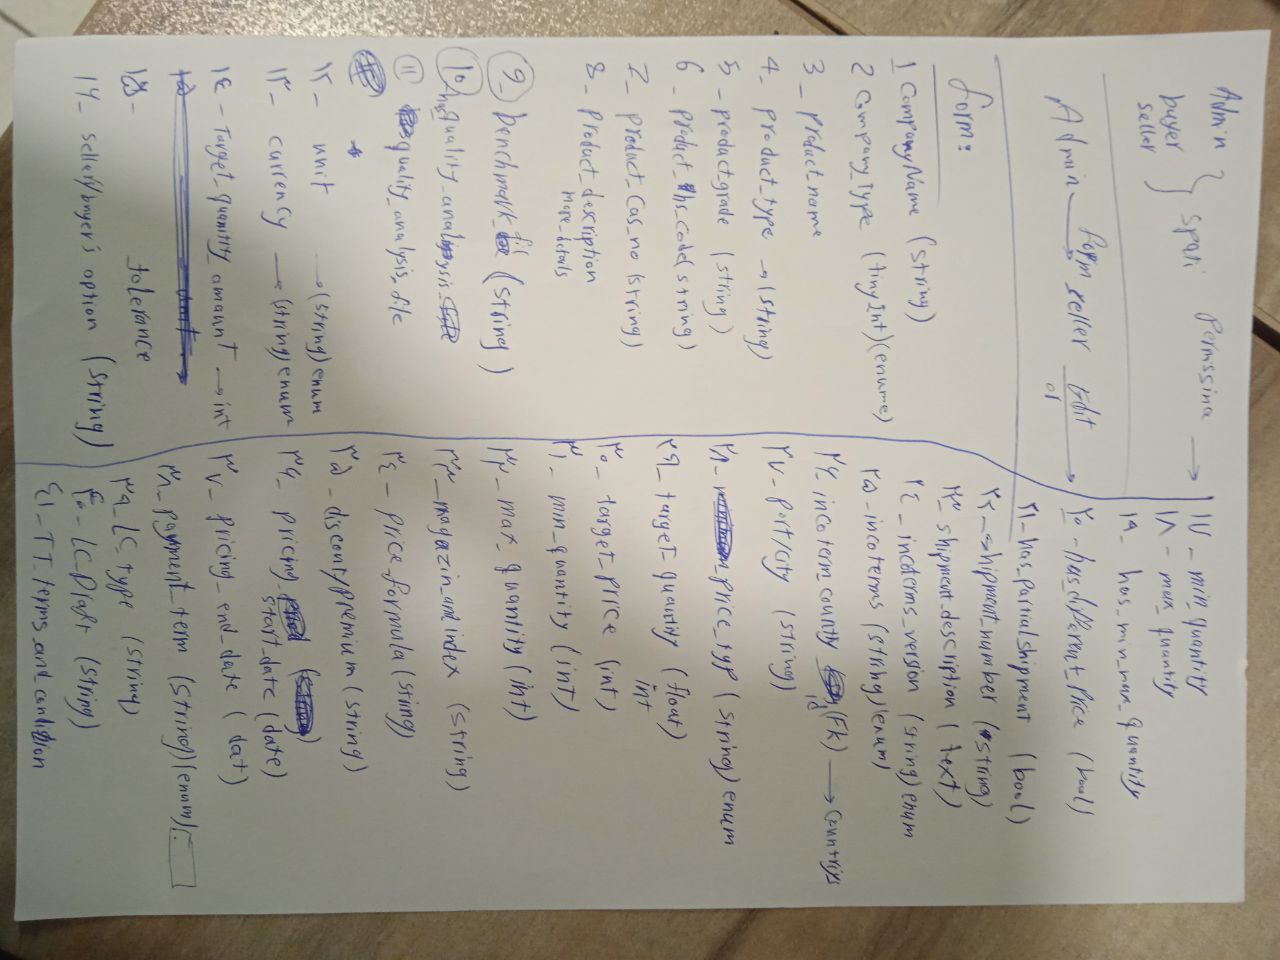 Admin
buyer
seller
spati permissina →
Admin form → seller Edit
of
form:
1 CompanyName (string)
2 Company_type (tinyInt)(enume)
3 _ product_name
4_ product_type → (string)
5 _ product_grade (string)
6 _ product_hs_code (string)
7_ product_Cas_no (string)
8_ product_description
more_details
9_ benchmark_fil (string)
10_ has_quality_analysis
11 quality_analysis_file
۱۲_ unit → (string) enum
۱۳_ currency → (string) enum
۱٤ - Target_quanitity_amaunt → int
۱۵- tolerance
۱۶_ seller/buyer's option (string)
۱۷ _ min_quantity
۱۸ - max_quantity
۱۹_ has_min_max_quantity
۲۰ - has_different_price (bool)
۲۱_ has_partial shipment (bool)
۲۲_ shipment_number (string)
۲۳ shipment_description (text)
۲٤_ incoterms_version (string) enum
۲۵_ incoterms (string)(enum)
۲۶_ incoterm_county id (Fk) → Countriys
۲۷_ port/city (string)
۲۸_ price_typ (string) enum
۲۹_ target_quantity (float)
int
۳۰_ target_price (int)
۳۱_ min_quantity (int)
۳۲_ max_quantity (int)
۳۳_ magazin_and index (string)
۳٤_ price_formula (string)
۳۵_ discont/premium (string)
۳۶_ pricing_
start_date (date)
۳۷_ pricing_end_date (dat)
۳۸_ payment_term (string)(enum)
۳۹_ LC_type (string)
٤۰_ LC_Draft (string)
٤۱_ TT_terms_and_condition